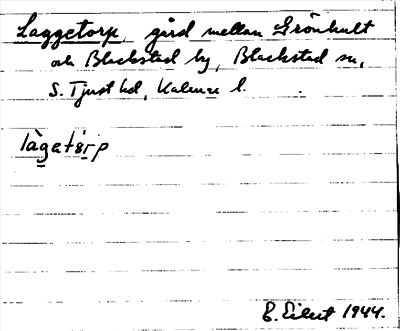 Laggetorp gård mellan Grönhult
och Blackstad by, Blackstad sn,
S. Tjust hd, Kalmar l.
làgatórp
E. Eilert 1944.